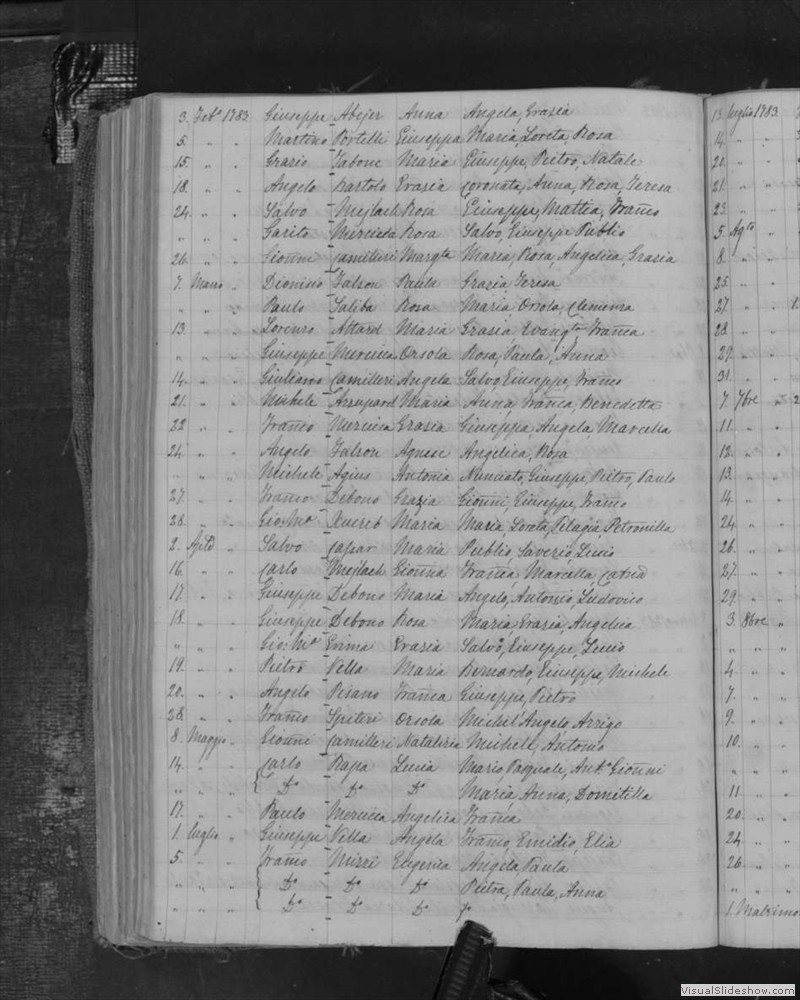 3. Feb.º 1783 Giuseppe Abejer Anna Angela, Grazia
5. " " Martino Portelli Giuseppa Maria, Loreta, Rosa
15. " " Grazio Tabone Maria Giuseppe, Pietro, Natale
18. " " Angelo Bartolo Grazia Coronata, Anna, Rosa, Teresa
24. " " Salvo Mejlach Rosa Giuseppe, Mattia, Franco
" " " Garito Mercieca Rosa Salvo, Giuseppe Publio
26. " " Gionni Camilleri Margta Maria, Rosa, Angelica, Grazia
7. Marzo " Dionisio Falzon Paula Grazia, Teresa
" " " Paulo Saliba Rosa Maria, Orsola, Clemenza
13. " " Lorenzo Attard Maria Grazia, Evangta, Franca
" " " Giuseppe Mercieca Orsola Rosa, Paula, Anna
14. " " Giuliano Camilleri Angela Salvo, Giuseppe, Franco
21. " " Michele Azzupard Maria Anna, Franca, Benedetta
22 " " Franco Mercieca Grazia Giuseppa, Angela, Marcella
24. " " Angelo Falzon Agnese Angelica, Rosa
" " " Michele Agius Antonia Nunciato, Giuseppe, Pietro, Paulo
27. " " Franco Debono Grazia Gionni, Giuseppe, Franco
28. " " Gio: Mª Xuereb Maria Maria, Loreta, Pelagia, Petronilla
2. Aple " Salvo Caspar Maria Publio, Saverio, Lucio
16. " " Carlo Mejlach Gionna Franca, Marcella,
17. " " Giuseppe Debono Maria Angelo, Antonio, Ludovico
18. " " Giuseppe Debono Rosa Maria, Grazia, Angelica
" " " Gio: Mª Grima Grazia Salvo, Giuseppe, Lucio
19. " " Pietro Vella Maria Bernardo, Giuseppe, Michele
20. " " Angelo Pisano Franca Giuseppe, Pietro
28 " " Franco Spiteri Orsola Michel'Angelo, Arrigo
8. Maggio " Gionni Camilleri Natalizia Michele, Antonio
14. " " Carlo Rapa Lucia Mario, Pasquale, Antº Gionni
" " " Dº Dº Dº Maria, Anna, Domitilla
17. " " Paulo Mercieca Angelica Franca
1. luglio " Giuseppe Vella Angela Franco, Emidio, Elia
5. " " Franco Mizzi Eugenia Angela, Paula
" " " Dº Dº Dº Pietra, Paula, Anna
" " " Dº Dº Dº
13. luglio 1783.
14. " "
20. " "
21. " "
23 " "
5. Agto "
8. " "
25. " "
27. " "
28. " "
29. " "
31. " "
7. 7bre "
11. " "
12. " "
13. " "
14. " "
24. " "
26. " "
27. " "
29. " "
3. 8bre "
" " "
4. " "
7. " "
9. " "
10. " "
" " "
11. " "
20. " "
24 " "
26. " "
" " "
1.
VisualSlideshow.com